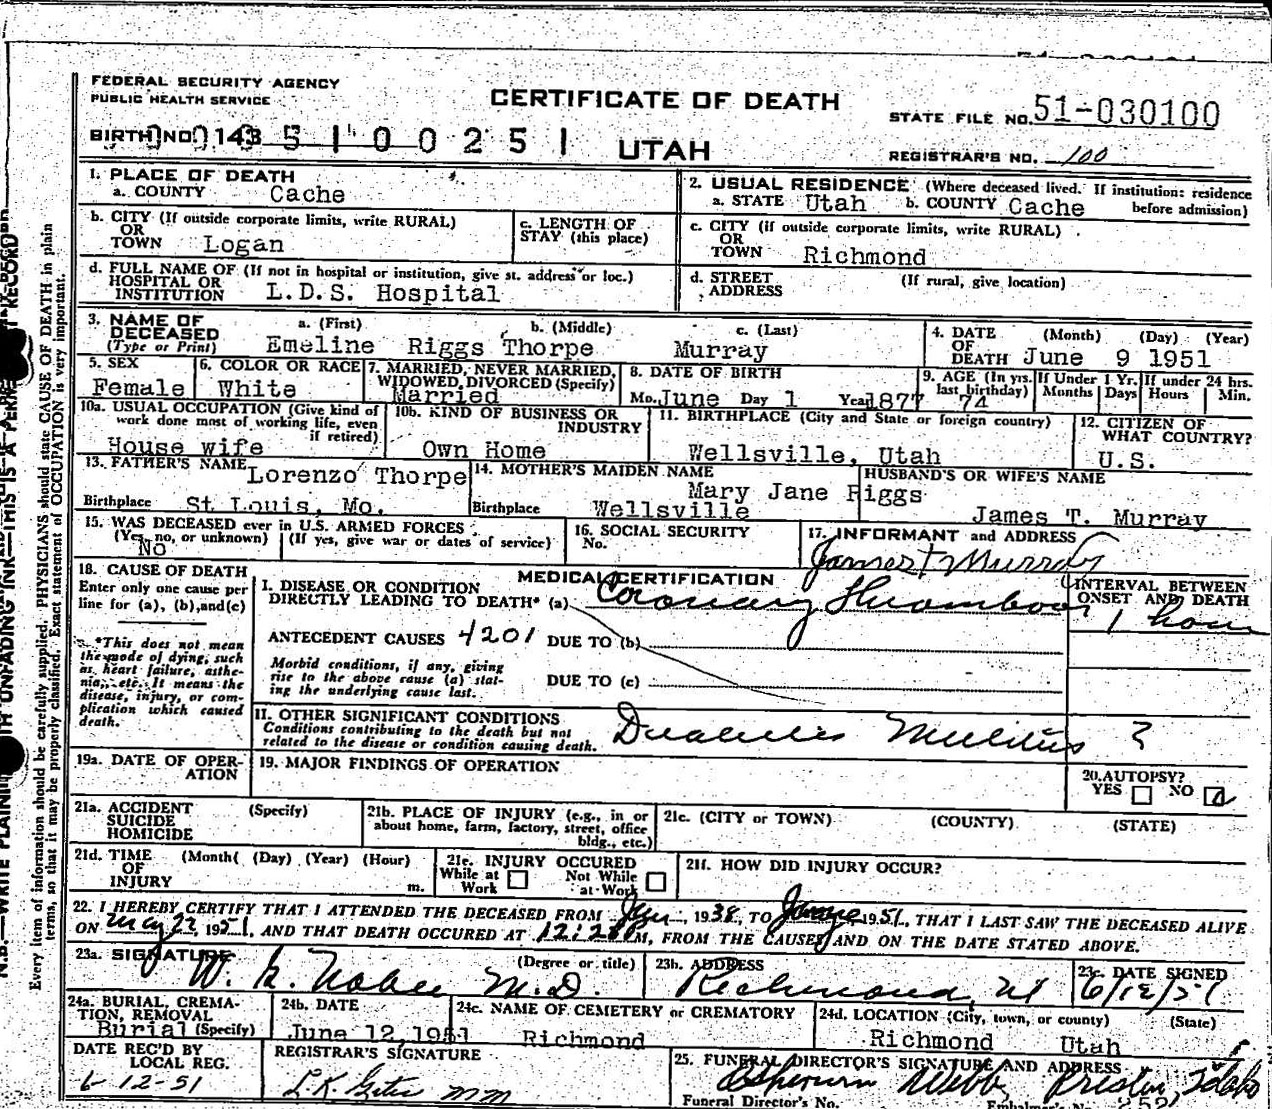 FEDERAL SECURITY AGENCY
PUBLIC HEALTH SERVICE
CERTIFICATE OF DEATH
STATE FILE NO. 51-030100
BIRTH NO. 143 5 1 0 0 2 5 1
UTAH
REGISTRAR'S NO. 100
1. PLACE OF DEATH
a. COUNTY Cache
2. USUAL RESIDENCE (Where deceased lived. If institution: residence before admission)
a. STATE Utah b. COUNTY Cache
b. CITY (If outside corporate limits, write RURAL)
OR
TOWN Logan
c. LENGTH OF
STAY (this place)
c. CITY (if outside corporate limits, write RURAL)
OR
TOWN Richmond
d. FULL NAME OF (If not in hospital or institution, give st. address or loc.)
HOSPITAL OR
INSTITUTION L.D.S. Hospital
d. STREET (If rural, give location)
ADDRESS
3. NAME OF DECEASED
(Type or Print)
a. (First) b. (Middle) c. (Last)
Emeline Riggs Thorpe Murray
4. DATE OF DEATH (Month) (Day) (Year)
June 9 1951
5. SEX
Female
6. COLOR OR RACE
White
7. MARRIED, NEVER MARRIED,
WIDOWED, DIVORCED (Specify)
Married
8. DATE OF BIRTH
Mo. June Day 1 Year 1877
9. AGE (In yrs. last birthday)
74
If Under 1 Yr.
Months Days
If under 24 hrs.
Hours Min.
10a. USUAL OCCUPATION (Give kind of
work done most of working life, even
if retired)
House wife
10b. KIND OF BUSINESS OR
INDUSTRY
Own Home
11. BIRTHPLACE (City and State or foreign country)
Wellsville, Utah
12. CITIZEN OF
WHAT COUNTRY?
U.S.
13. FATHER'S NAME Lorenzo Thorpe
Birthplace St Louis, Mo.
14. MOTHER'S MAIDEN NAME
Mary Jane Riggs
Birthplace Wellsville
HUSBAND'S OR WIFE'S NAME
James T. Murray
15. WAS DECEASED ever in U.S. ARMED FORCES
(Yes, no, or unknown) (If yes, give war or dates of service)
No
16. SOCIAL SECURITY
No.
17. INFORMANT and ADDRESS
James T Murray
18. CAUSE OF DEATH
Enter only one cause per
line for (a), (b), and (c)
*This does not mean
the mode of dying, such
as heart failure, asthe-
nia, etc. It means the
disease, injury, or com-
plication which caused
death.
MEDICAL CERTIFICATION
I. DISEASE OR CONDITION
DIRECTLY LEADING TO DEATH* (a) Coronary
INTERVAL BETWEEN
ONSET AND DEATH
1 hour
ANTECEDENT CAUSES 4201 DUE TO (b)
Morbid conditions, if any, giving
rise to the above cause (a) stat-
ing the underlying cause last.
DUE TO (c)
II. OTHER SIGNIFICANT CONDITIONS
Conditions contributing to the death but not
related to the disease or condition causing death.
Diabetes Mellitus ?
19a. DATE OF OPER-
ATION
19. MAJOR FINDINGS OF OPERATION
20. AUTOPSY?
YES NO
21a. ACCIDENT (Specify)
SUICIDE
HOMICIDE
21b. PLACE OF INJURY (e.g., in or
about home, farm, factory, street, office
bldg., etc.)
21c. (CITY or TOWN) (COUNTY) (STATE)
21d. TIME (Month( (Day) (Year) (Hour)
OF
INJURY m.
21e. INJURY OCCURED
While at Work
Not While at Work
21f. HOW DID INJURY OCCUR?
22. I HEREBY CERTIFY THAT I ATTENDED THE DECEASED FROM 1938, TO 1951, THAT I LAST SAW THE DECEASED ALIVE
ON May 22 1951, AND THAT DEATH OCCURED AT M, FROM THE CAUSES AND ON THE DATE STATED ABOVE.
23a. SIGNATURE (Degree or title)
M.D.
23b. ADDRESS
Richmond, Ut
23c. DATE SIGNED
6/12/51
24a. BURIAL, CREMA-
TION, REMOVAL
Burial (Specify)
24b. DATE
June 12, 1951
24c. NAME OF CEMETERY or CREMATORY
Richmond
24d. LOCATION (City, town, or county) (State)
Richmond Utah
DATE REC'D BY
LOCAL REG.
6-12-51
REGISTRAR'S SIGNATURE
25. FUNERAL DIRECTOR'S SIGNATURE AND ADDRESS
Webb, Preston, Idaho
Funeral Director's No.
Embalmer's No.
N.B.—WRITE PLAINLY WITH UNFADING INK—THIS IS A PERMANENT RECORD
Every item of information should be carefully supplied. PHYSICIANS should state CAUSE OF DEATH in plain
terms, so that it may be properly classified. Exact statement of OCCUPATION is very important.